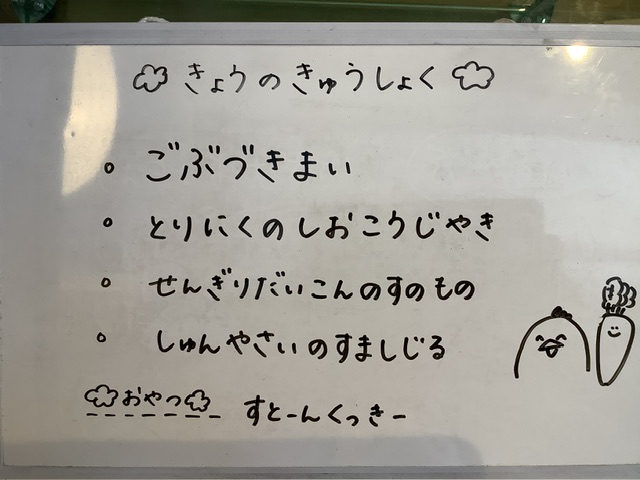 きょうのきゅうしょく
ごぶづきまい
とりにくのしおこうじやき
せんぎりだいこんのすのもの
しゅんやさいのすましじる
おやつ すとーんくっきー